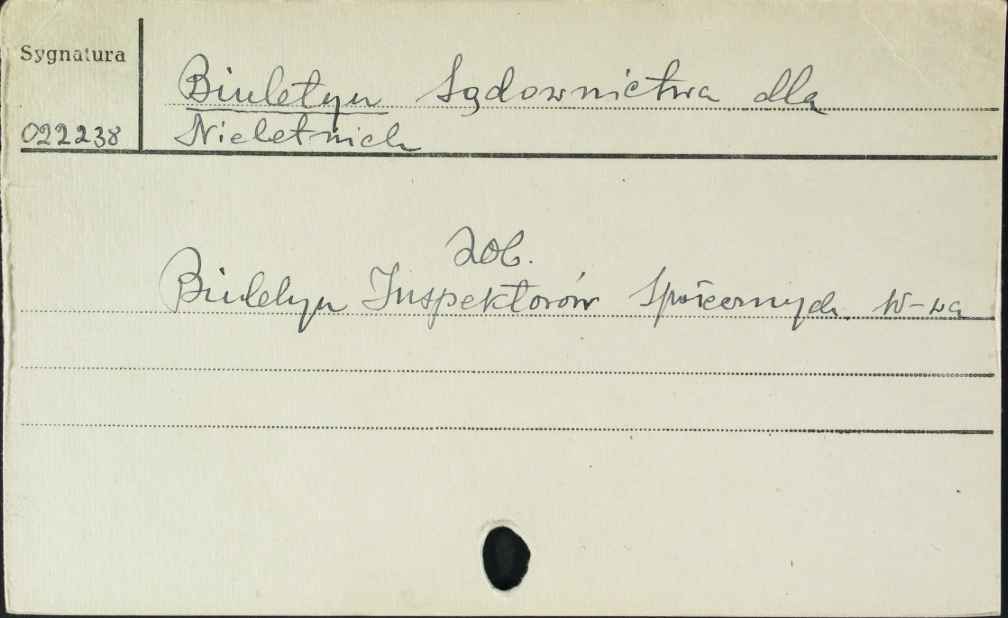 Sygnatura
Biuletyn Sądownictwa dla
022238 Nieletnich
zob.
Biuletyn Inspektorów Społecznych. W-wa